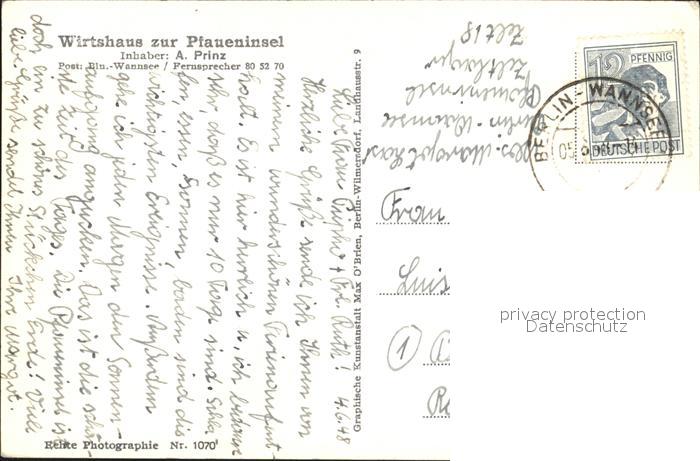 Wirtshaus zur Pfaueninsel
Inhaber: A. Prinz
Post: Bln.-Wannsee / Fernsprecher 80 52 70
Graphische Kunstanstalt Max O'Brien, Berlin-Wilmersdorf, Landhausstr. 9
Echte Photographie Nr. 1070
4.6.48
Herzliche Grüße sende ich Ihnen von
meinem wunderschönen Ferienaufent-
halt. Es ist hier herrlich u. ich bedaure
sehr, daß es nur 10 Tage sind. Schla-
fen, essen, sonnen, baden sind die
wichtigsten Ereignisse. Außerdem
geh ich jeden Morgen den Sonnen-
aufgang angucken. Das ist die schön-
ste Zeit des Tages. Die Pfaueninsel ist
doch ein zu schönes Stückchen Erde! Viele
liebe Grüße sendet Ihnen Ihre Margot.
Abs. Margot
Berlin-Wannsee
Pfaueninsel
Zeltlager
Zelt 18
Frau
Luis
1
12 PFENNIG
DEUTSCHE POST
BERLIN-WANNSEE
privacy protection
Datenschutz